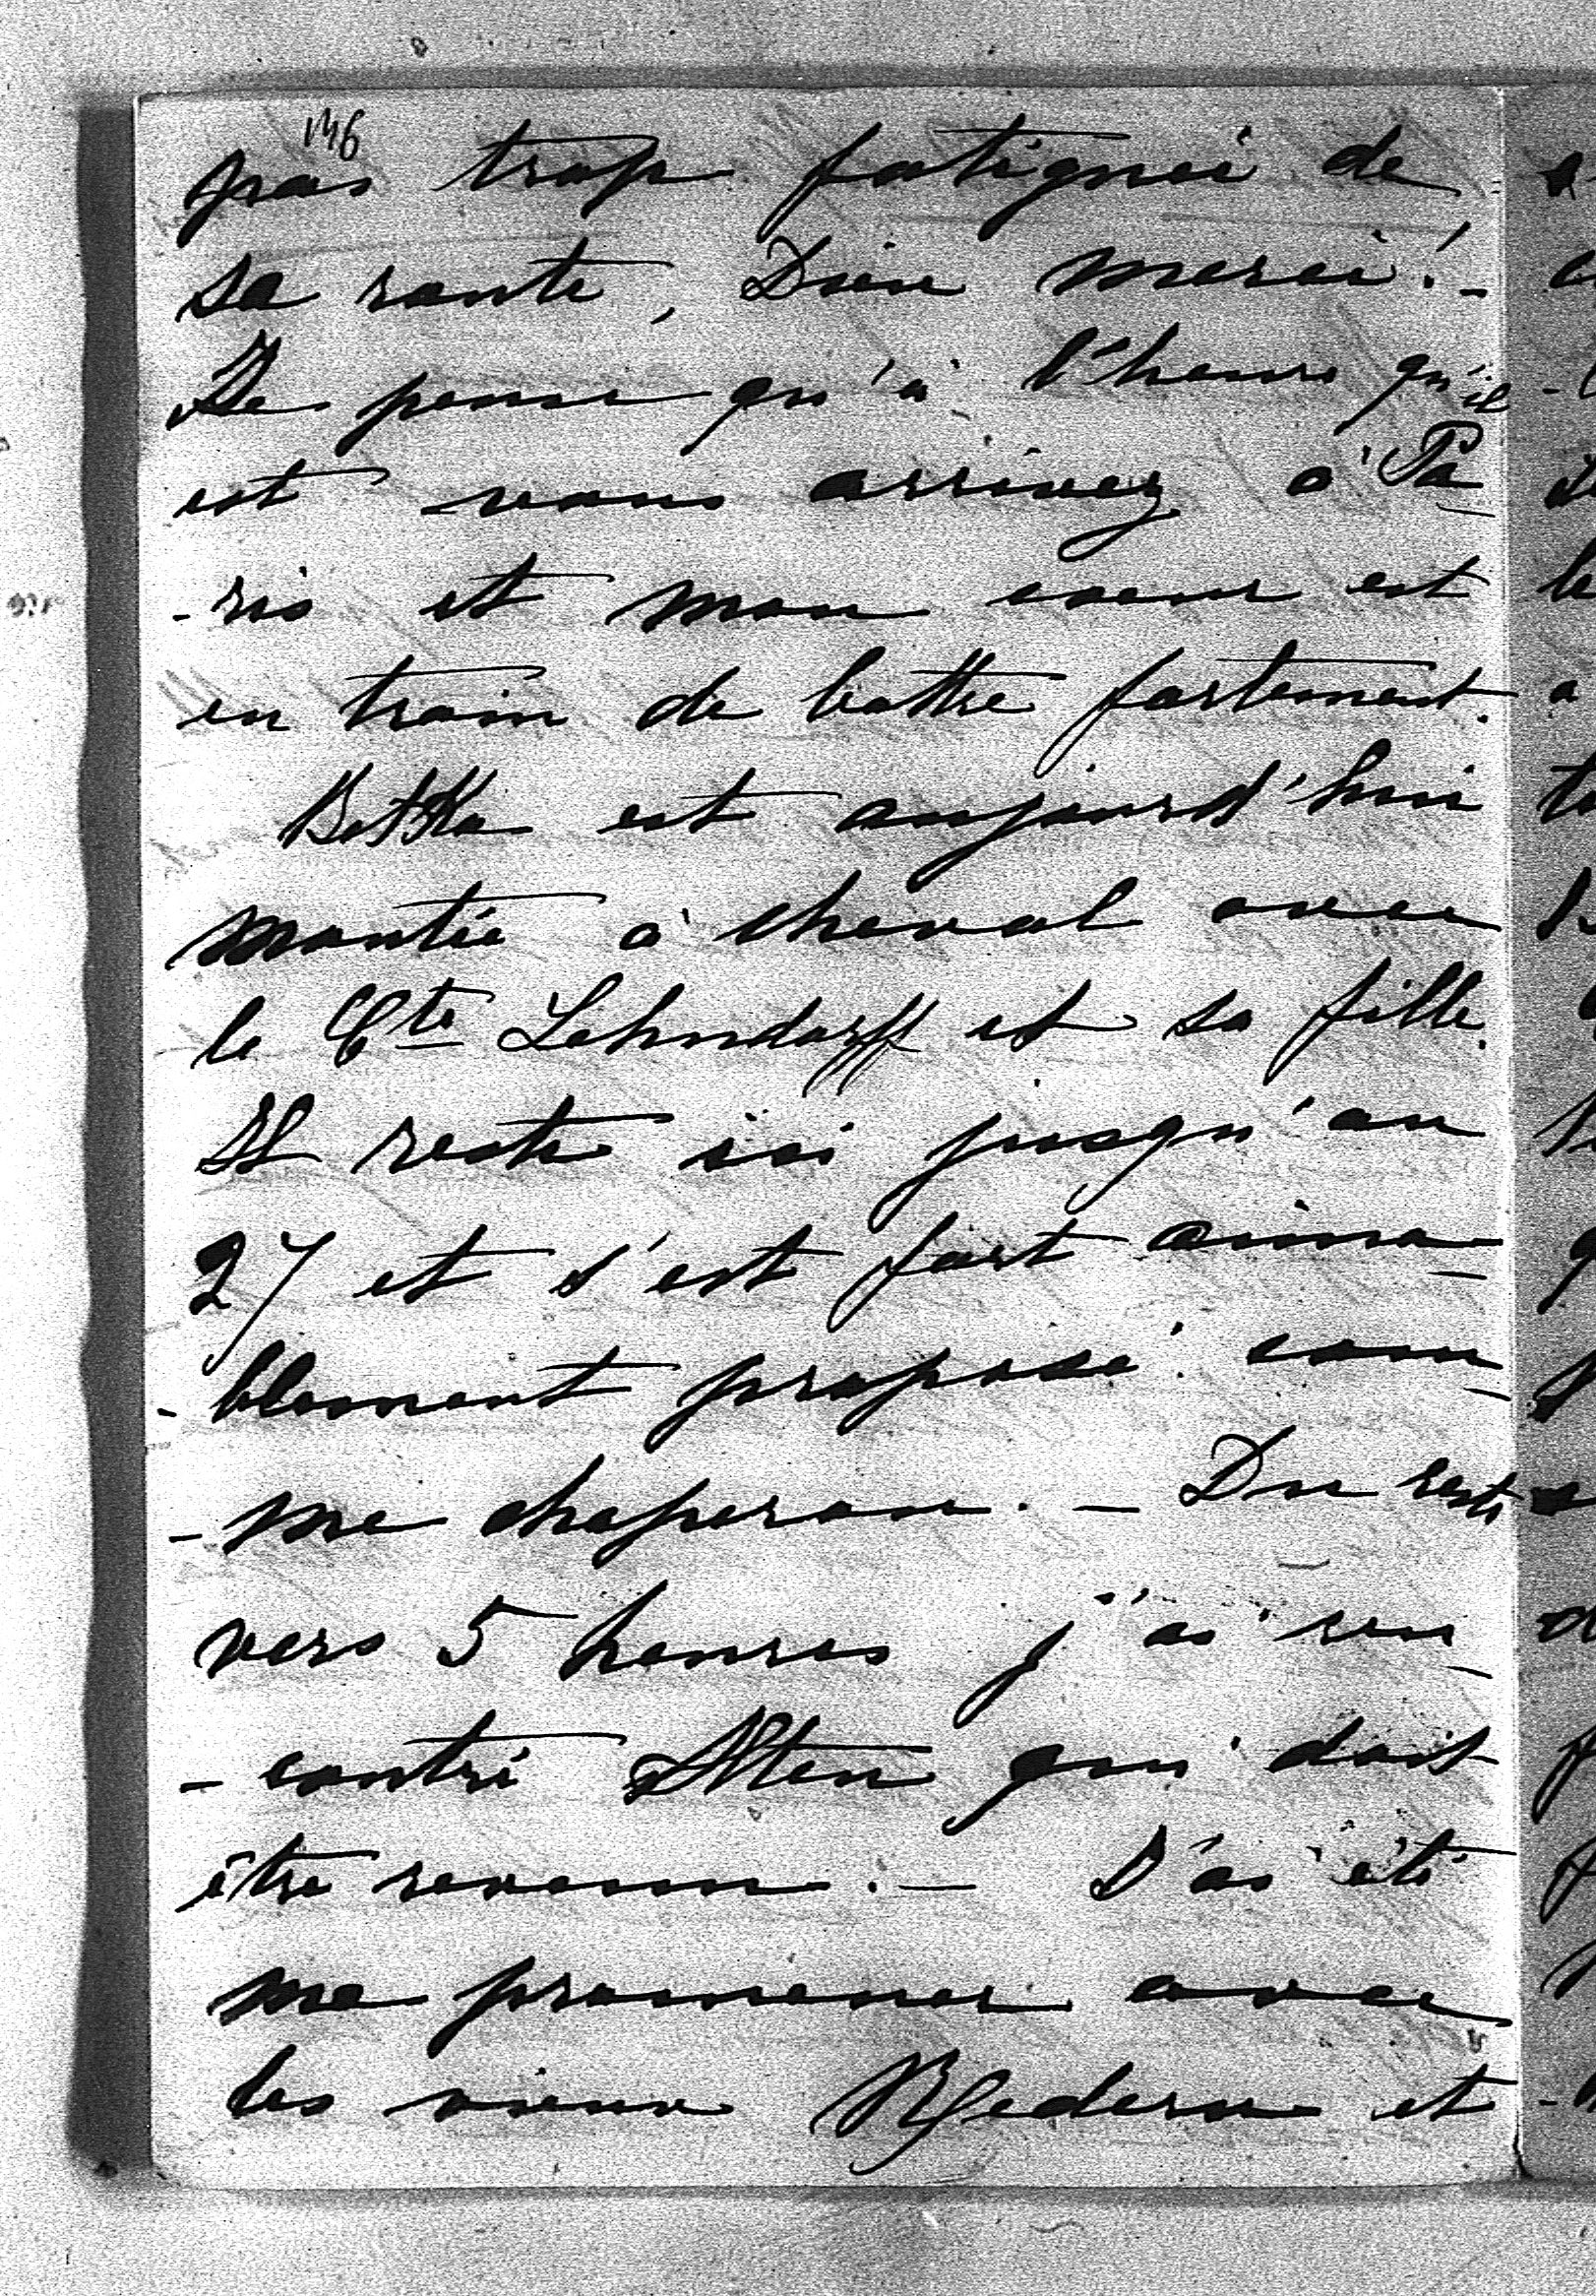 146
pas trop fatiguée de
sa route, Dieu merci! -
Je pense qu'à l'heure qu'il
est vous arrivez à Pa
-ris et mon coeur est
en train de battre fortement.
Betka est aujourd'hui
montée à cheval avec
le Cte Lehndorff et sa fille.
Il reste ici jusqu'au
27 et s'est fort aima-
-blement proposé com-
-me chaperon. - Du reste
vers 5 heures j'ai ren-
-contré Alten qui doit
être revenu. - J'ai été
me promener avec
les vieux Redern et